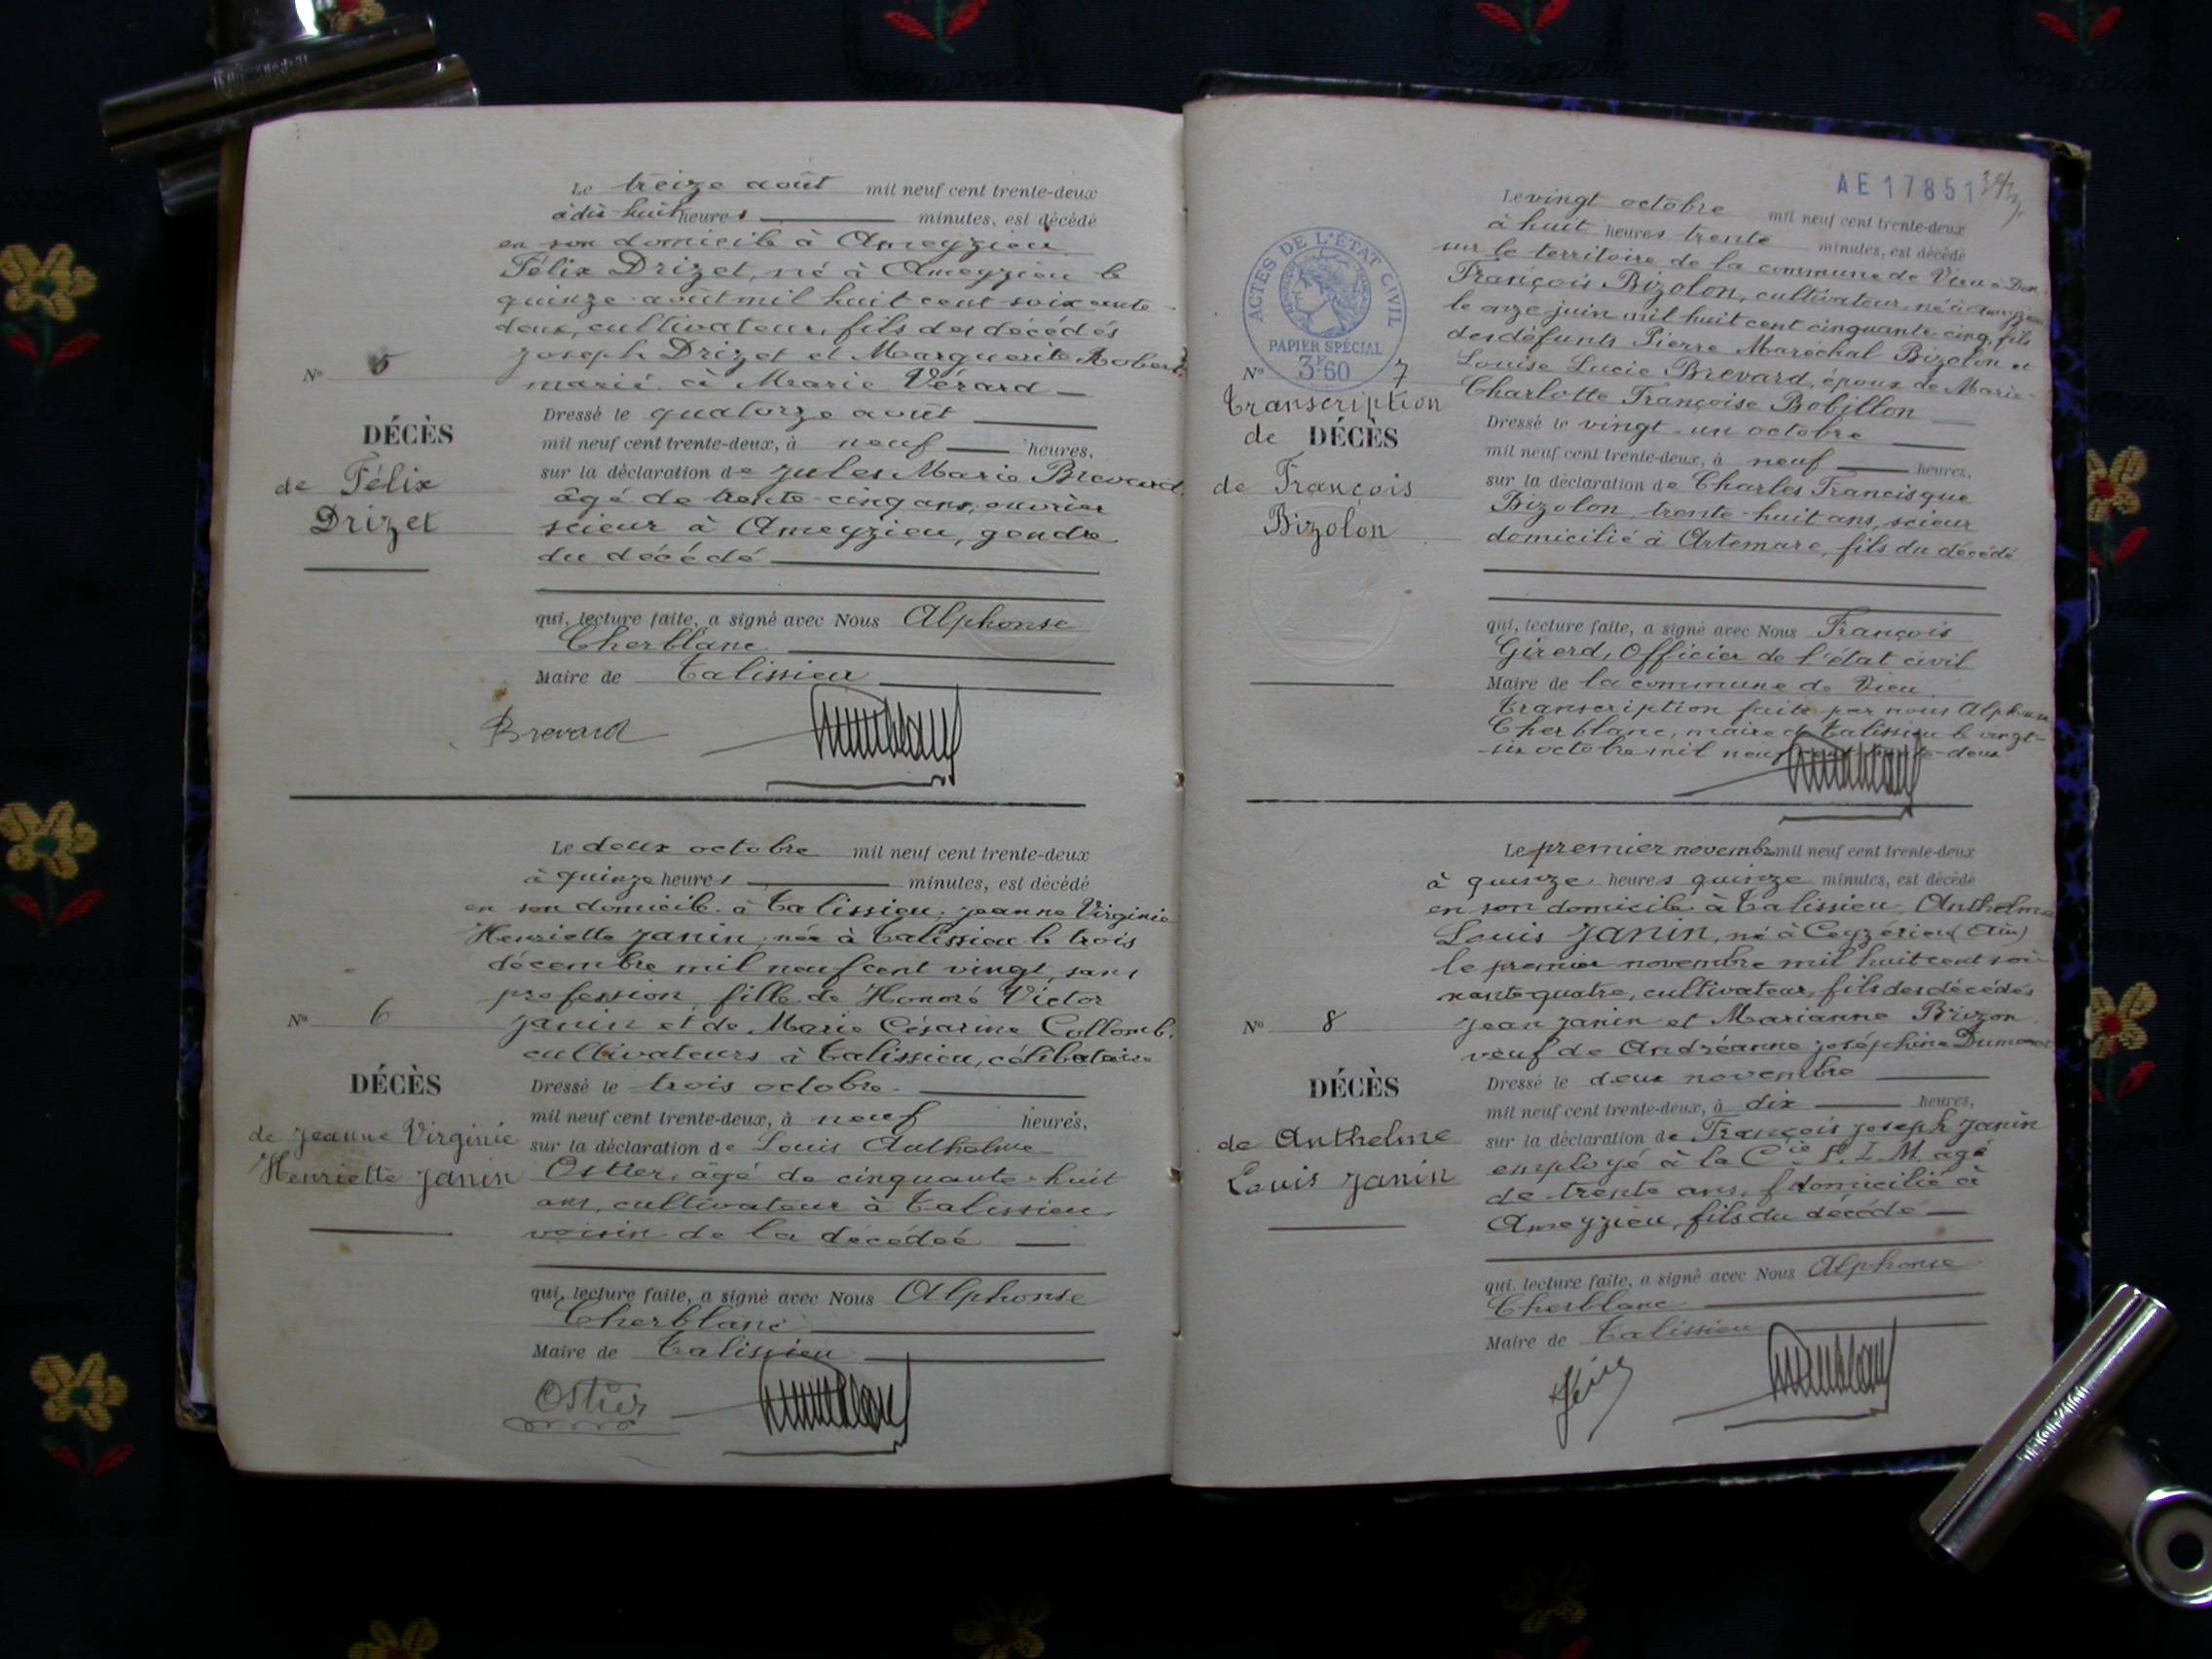 Le treize août mil neuf cent trente-deux
à dix huit heures minutes, est décédé
en son domicile à Ameyzieu
Félix Drizet, né à Ameyzieu le
quinze août mil huit cent soixante-
deux, cultivateur, fils des décédés
Joseph Drizet et Marguerite Robert,
marié à Marie Vérard
N° 5
DÉCÈS
de Félix
Drizet
Dressé le quatorze août
mil neuf cent trente-deux, à neuf heures,
sur la déclaration de Jules Marie Brevard,
âgé de trente-cinq ans, ouvrier
scieur à Ameyzieu, gendre
du décédé
qui, lecture faite, a signé avec Nous Alphonse
Cherblanc
Maire de Talissieu
Brevard
Le deux octobre mil neuf cent trente-deux
à quinze heures minutes, est décédé
en son domicile à Talissieu, Jeanne Virginie
Henriette Janin, née à Talissieu le trois
décembre mil neuf cent vingt, sans
profession, fille de Honoré Victor
Janin et de Marie Césarine Collomb,
cultivateurs à Talissieu, célibataire
N° 6
DÉCÈS
de Jeanne Virginie
Henriette Janin
Dressé le trois octobre
mil neuf cent trente-deux, à neuf heures,
sur la déclaration de Louis Anthelme
Ostier, âgé de cinquante-huit
ans, cultivateur à Talissieu,
voisin de la décédée
qui, lecture faite, a signé avec Nous Alphonse
Cherblanc
Maire de Talissieu
Ostier
AE 17851
ACTES DE L'ÉTAT CIVIL
PAPIER SPÉCIAL
3F60
Le vingt octobre mil neuf cent trente-deux
à huit heures trente minutes, est décédé
sur le territoire de la commune de Vieu
François Bizolon, cultivateur, né à Ameyzieu
le onze juin mil huit cent cinquante-cinq, fils
des défunts Pierre Maréchal Bizolon et
Louise Lucie Brevard, époux de Marie-
Charlotte Françoise Bobillon
N° 7
Transcription
de DÉCÈS
de François
Bizolon
Dressé le vingt-un octobre
mil neuf cent trente-deux, à neuf heures,
sur la déclaration de Charles Francisque
Bizolon, trente-huit ans, scieur
domicilié à Artemare, fils du décédé
qui, lecture faite, a signé avec Nous François
Girerd, Officier de l'état civil
Maire de la commune de Vieu.
Transcription faite par nous Alphonse
Cherblanc, maire de Talissieu le vingt-
six octobre mil neuf cent trente-deux
Le premier novembre mil neuf cent trente-deux
à quinze heures quinze minutes, est décédé
en son domicile à Talissieu, Anthelme
Louis Janin, né à Ceyzérieu (Ain)
le premier novembre mil huit cent soi-
xante quatre, cultivateur, fils des décédés
Jean Janin et Marianne Brizon
veuf de Andréanne Joséphine Dumont
N° 8
DÉCÈS
de Anthelme
Louis Janin
Dressé le deux novembre
mil neuf cent trente-deux, à dix heures,
sur la déclaration de François Joseph Janin
employé à la Cie P.L.M. âgé
de trente ans, domicilié à
Ameyzieu, fils du décédé
qui, lecture faite, a signé avec Nous Alphonse
Cherblanc
Maire de Talissieu